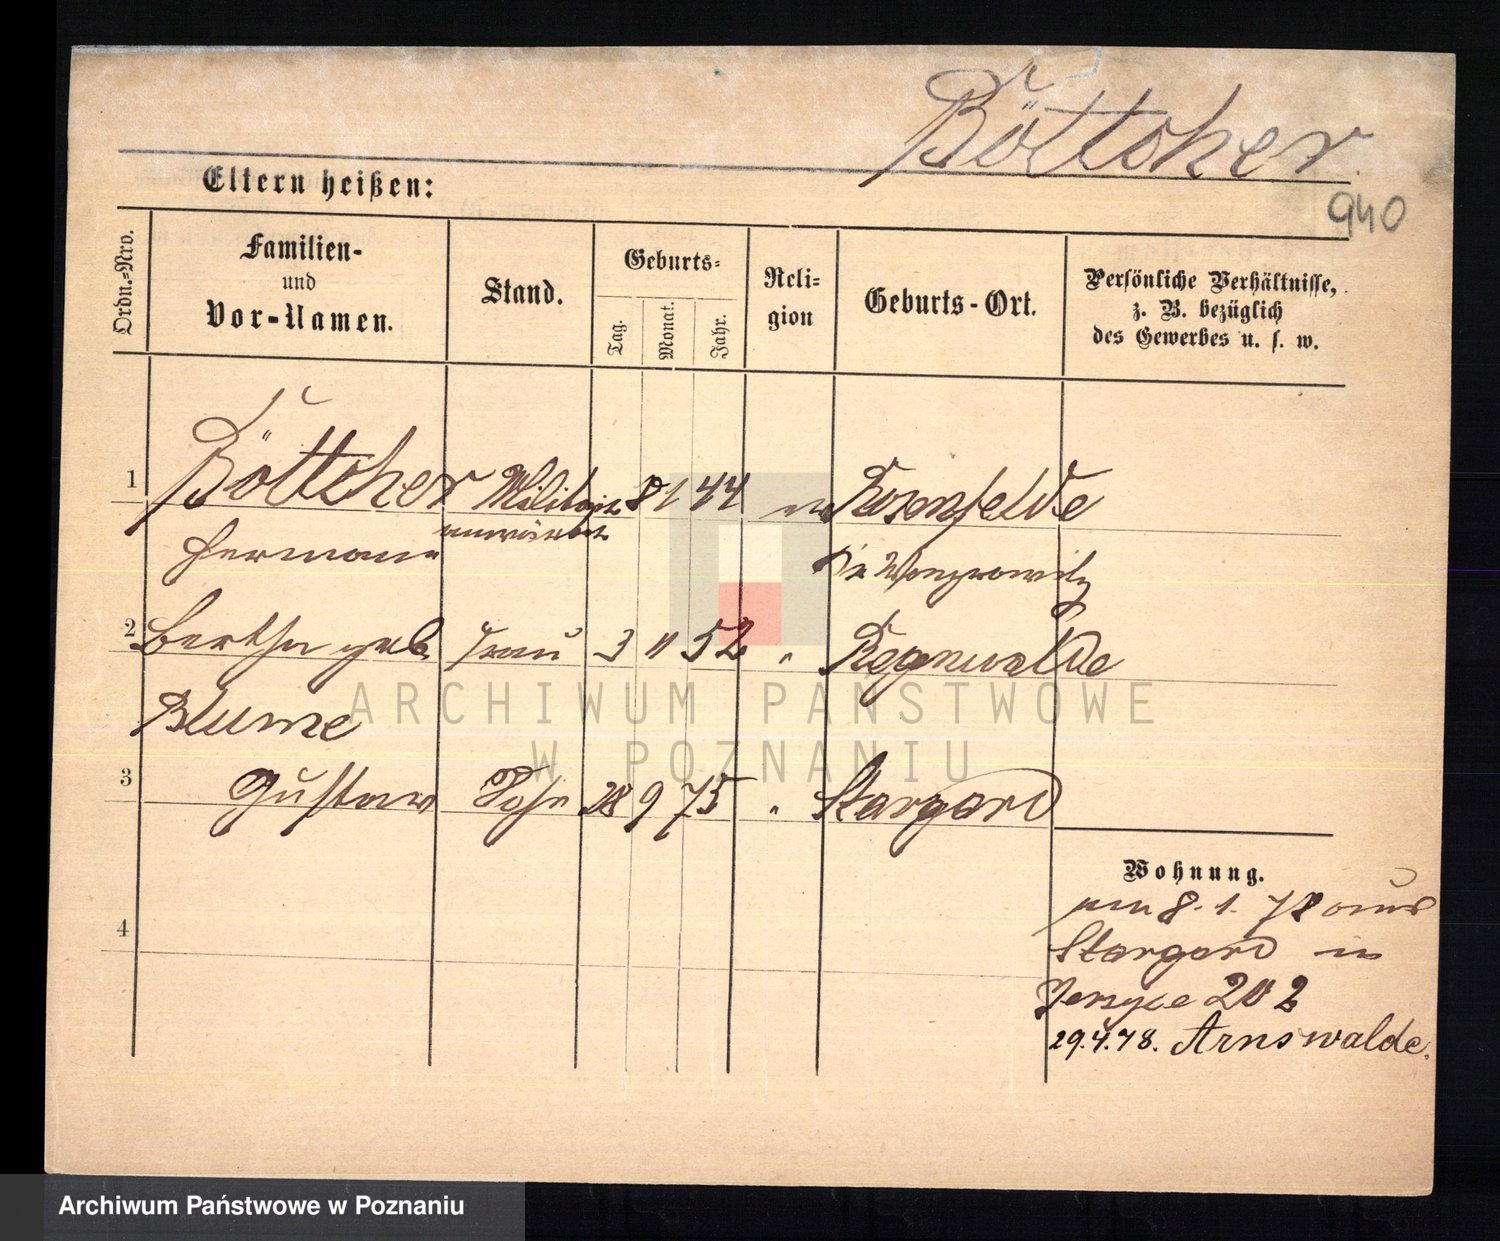 Böttcher
940
Eltern heißen:
Ordn.-Nro.
Familien-
und
Vor-Namen.
Stand.
Geburts-
Tag.
Monat.
Jahr.
Reli-
gion
Geburts-Ort.
Persönliche Verhältnisse,
z. B. bezüglich
des Gewerbes u. s. w.
1 Böttcher Militair 8 1 44 ev
anwärter
Hermann
Kr. Wongrowitz
2 Bertha geb. Frau 3 11 52 " Regenwalde
Blume
3 Gustav Sohn 28 9 75 " Stargard
4
Wohnung.
am 8. 1. 78 aus
Stargard in
Jersyce 202
29.4.78. Arnswalde.
ARCHIWUM PAŃSTWOWE
W POZNANIU
Archiwum Państwowe w Poznaniu